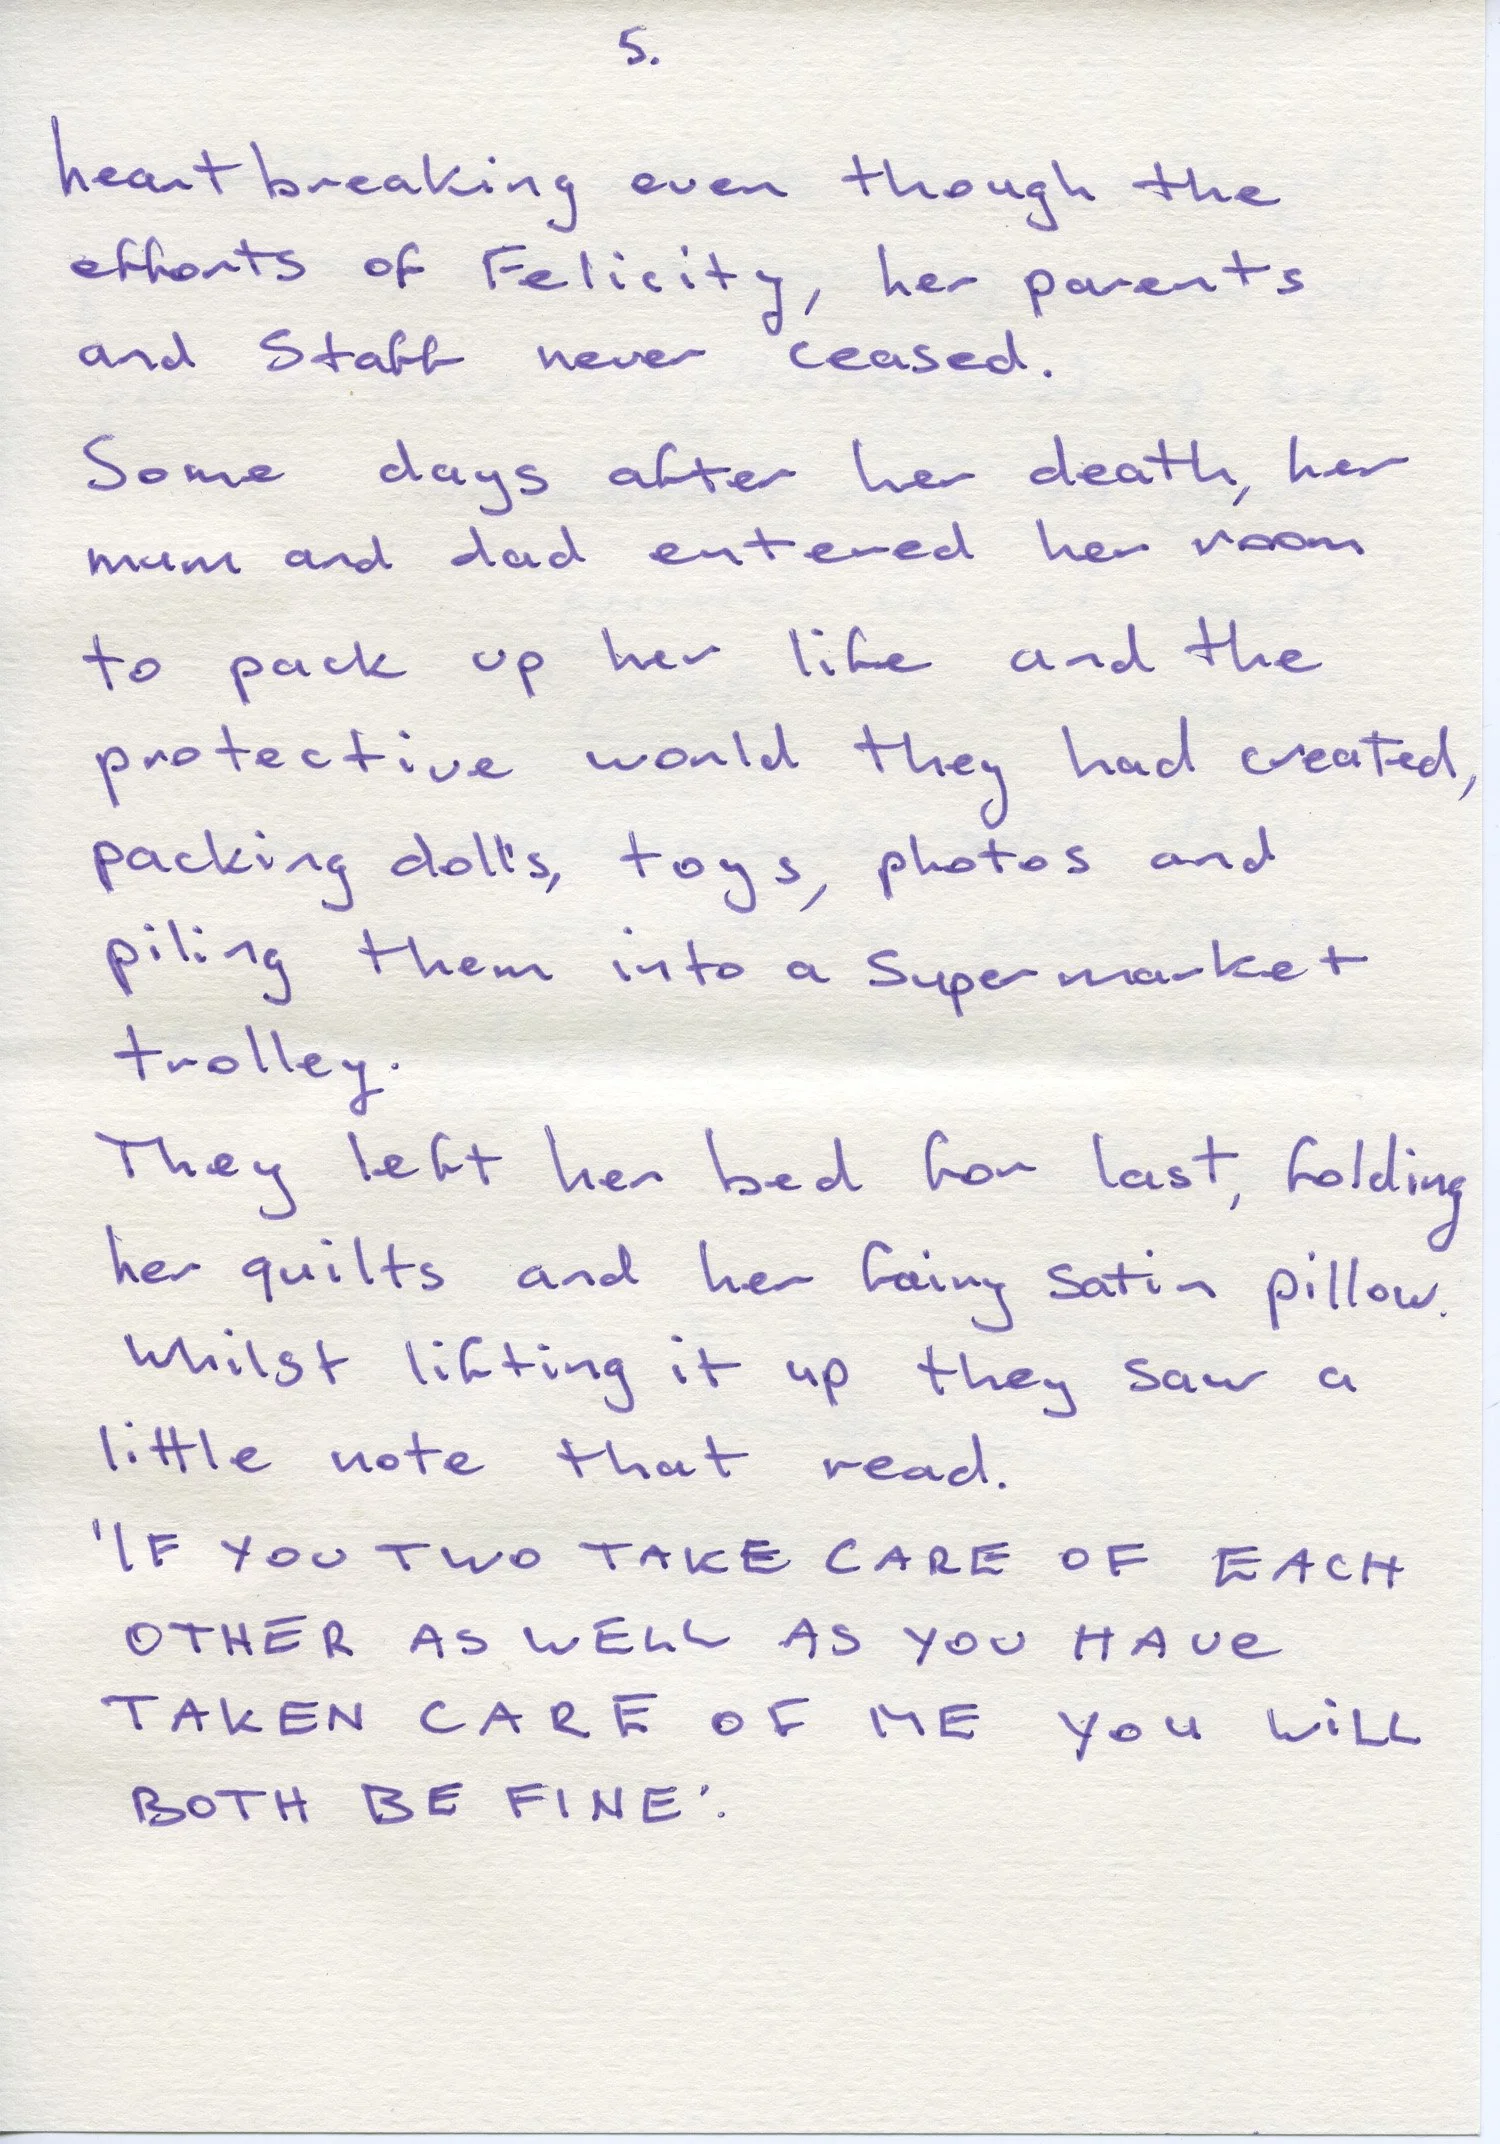 5.
heartbreaking even though the
efforts of Felicity, her parents
and Staff never ceased.
Some days after her death, her
mum and dad entered her room
to pack up her life and the
protective world they had created,
packing doll's, toys, photos and
piling them into a Supermarket
trolley.
They left her bed for last, folding
her quilts and her fairy satin pillow.
Whilst lifting it up they saw a
little note that read.
'IF YOU TWO TAKE CARE OF EACH
OTHER AS WELL AS YOU HAVE
TAKEN CARE OF ME YOU WILL
BOTH BE FINE'.